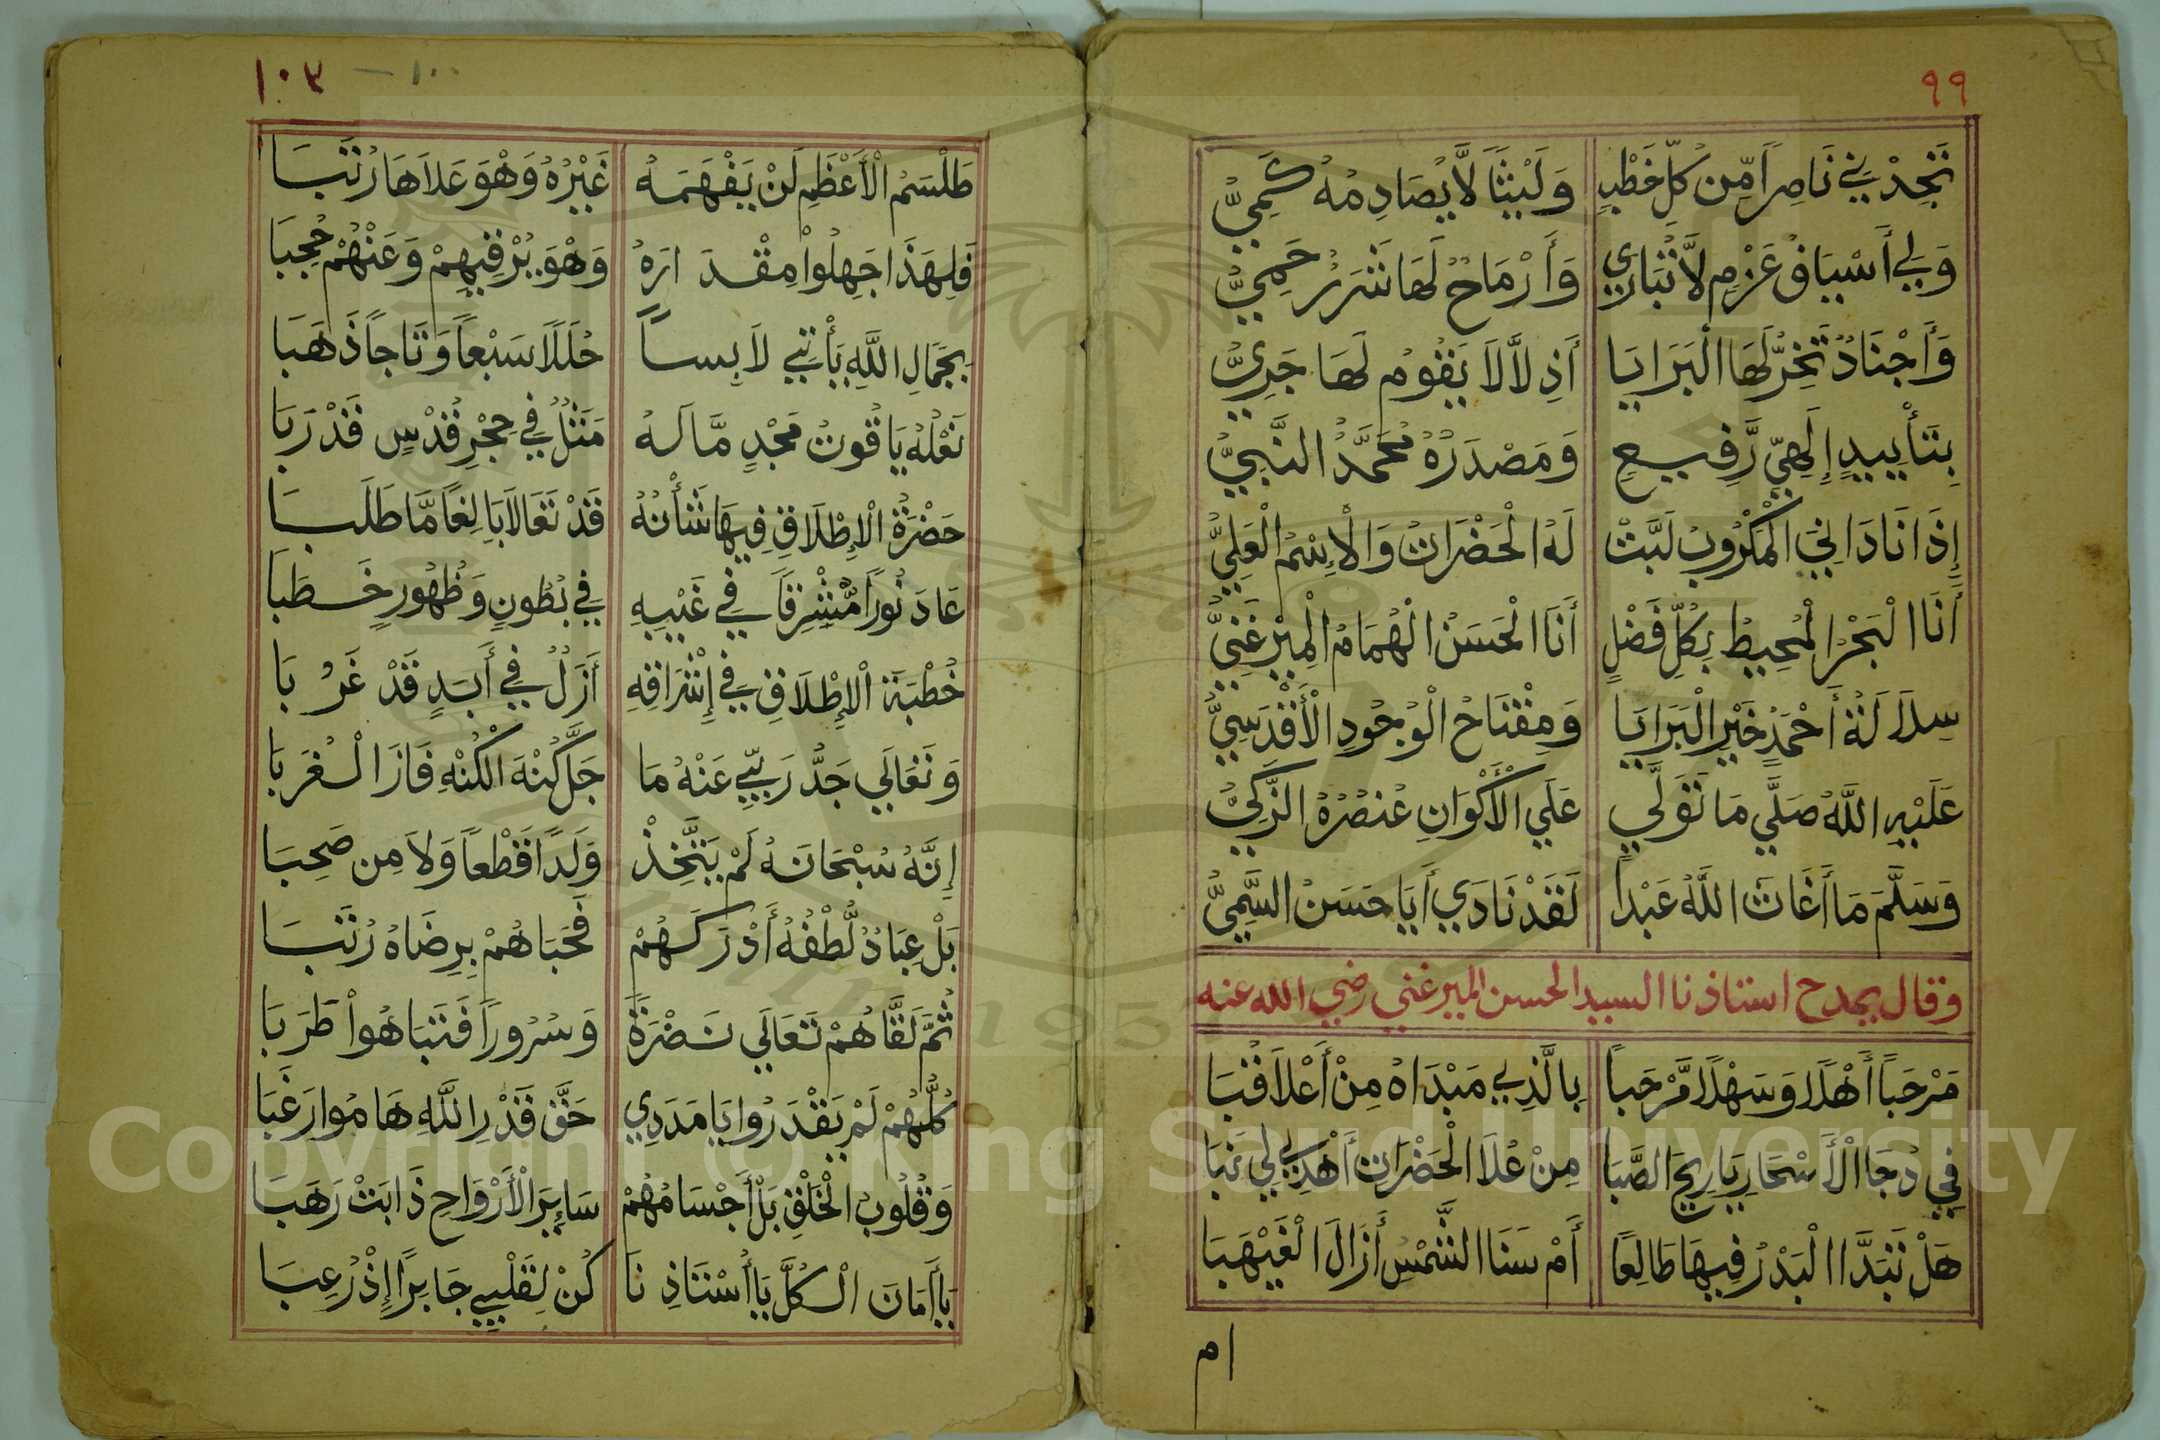 ٩٩
تَجِدْنِي نَاصِراً مِّن كُلِّ خَطْبٍ وَلَيْثاً لاَّ يُصَادِمُهُ كَمِيُّ
وَلِي أَسْيَافُ عَزْمٍ لاَّ تُبَارِي وَأَرْمَاحٌ لَهَا شَرَرٌ حَمِيُّ
وَأَجْنَادٌ تَخِرُّ لَهَا الْبَرَايَا أَذِلاَّ لاَ يَقُومُ لَهَا جَرِيُّ
بِتَأْيِيدٍ إِلَهِيٍّ رَّفِيعٍ وَمَصْدَرُهُ مُحَمَّدٌ النَّبِيُّ
إِذَا نَادَانِيَ الْمَكْرُوبُ لَبَّتْ لَهُ الْحَضْرَاتُ وَالْإِسْمُ الْعَلِيُّ
أَنَا الْبَحْرُ الْمُحِيطُ بِكُلِّ فَضْلٍ أَنَا الْحَسَنُ الْهُمَامُ الْمِيْرغَنِيُّ
سِلاَلَةُ أَحْمَدٍ خَيْرِ الْبَرَايَا وَمِفْتَاحُ الْوُجُودِ الْأَقْدَسِيُّ
عَلَيْهِ اللَّهُ صَلَّي مَا تَوَلَّي عَلَي الْأَكْوَانِ عُنصُرُهُ الزَّكِيُّ
وَسَلَّمَ مَا أَغَاثَ اللَّهُ عَبْداً لَقَدْ نَادَي أَيَا حَسَنُ السَّمِيُّ
وقال يمدح استاذنا السيد الحسن الميرغني رضي الله عنه
مَرْحَباً أَهْلاً وَسَهْلاً مَّرْحَباً بِالَّذِي مَبْدَاهُ مِنْ أَعْلاَ قُبَا
فِي دُجَا الْأَسْحَارِ يَا رِيحَ الصَّبَا مِنْ عُلاَ الْحَضْرَاتِ أَهْدِي لِي نَبَا
هَلْ تَبَدَّا الْبَدْرُ فِيهَا طَالِعًا أَمْ سَنَا الشَّمْسُ أَزَالَ الْغَيْهَبَا
١٠٣ — ١٠٠
طَلْسَمُ الْأَعْظَمِ لَنْ يَفْهَمَهُ غَيْرُهُ وَهْوَ عَلاَهَا رُتَبَا
فَلِهَذَا جَهِلُوا مِقْدَارَهُ وَهْوَ بُرْفِيهِمْ وَعَنْهُمْ حُجِبَا
بِجَمَالِ اللَّهِ يَأْتِي لاَبِساً حُلَلاً سَبْعاً وَتَاجاً ذَهَبَا
نَعْلُهُ يَاقُوتُ مَجْدٍ مَّا لَهُ مَثَلٌ فِي حِجْرِ قُدْسٍ قَدْ رَبَا
حَضْرَةُ الْإِطْلاَقِ فِيهَا شَأْنُهُ قَدْ تَعَالاَ بَالِغاً مَّا طَلَبَا
عَادَ نُوراً مُّشْرِقاً فِي غَيْبِهِ فِي بُطُونٍ وَظُهُورٍ خَطَبَا
خُطْبَةَ الْإِطْلاَقِ فِي إِشْرَاقِهِ أَزَلٌ فِي أَبَدٍ قَدْ غَرُبَا
وَتَعَالَي جَدُّ رَبِّي عَنْهُ مَا جَلَّ كُنْهَ الْكُنْهِ فَازَ الْغُرَبَا
إِنَّهُ سُبْحَانَهُ لَمْ يَتَّخِذْ وَلَداً قَطْعاً وَلاَ مِن صَحِبَا
بَلْ عِبَادٌ لُّطْفُهُ أَدْرَكَهُمْ فَحَبَاهُمْ بِرِضَاهُ رُتَبَا
ثُمَّ لَقَّاهُمْ تَعَالَي نَضْرَةً وَسُرُوراً فَتَبَاهُواْ طَرَبَا
كُلُّهُمْ لَمْ يَقْدَرُوا يَا مَدَدِي حَقَّ قَدْرِ اللَّهِ هَامُوا رَغَبَا
وَقُلُوبُ الْخَلْقِ بَلْ أَجْسَامُهُمْ سَايِرَ الْأَرْوَاحِ ذَابَتْ رَهَبَا
يَا أَمَانَ الْكُلِّ يَا أُسْتَاذِنَا كُنْ لِقَلْبِي جَابِرًا إِذْ رُعِبَا
Copyright © King Saud University